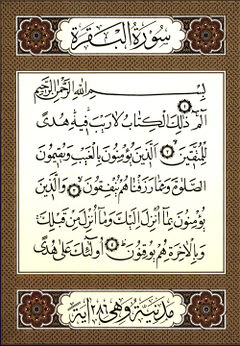 سورة البقرة
بسم الله الرحمن الرحيم
الم ۝١ ذلك الكتاب لا ريب فيه هدى
للمتقين ۝٢ الذين يؤمنون بالغيب ويقيمون
الصلوة ومما رزقناهم ينفقون ۝٣ والذين
يؤمنون بما أنزل إليك وما أنزل من قبلك
وبالآخرة هم يوقنون ۝٤ أولئك على هدى
مدنية وهي ٢٨٦ آية